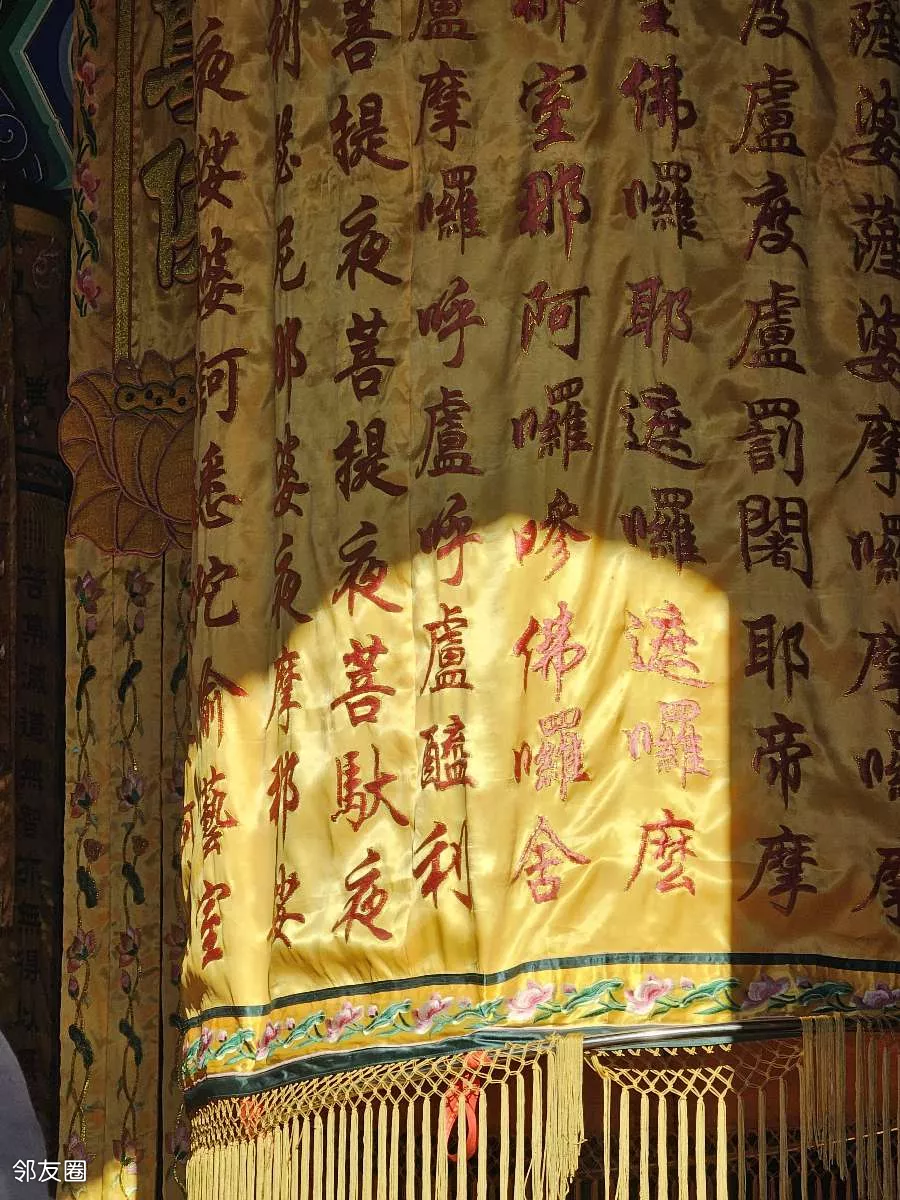 薩婆薩婆摩囉摩囉摩
度盧度盧罰闍耶帝摩
室佛囉耶遮囉遮囉麼
那室那阿囉嘇佛囉舍
盧摩囉呼盧呼盧醯利
菩提夜菩提夜菩馱夜
利瑟尼那婆夜摩那娑
夜娑婆訶悉陀喻藝室
苦集滅道無智亦無得以
邻友圈